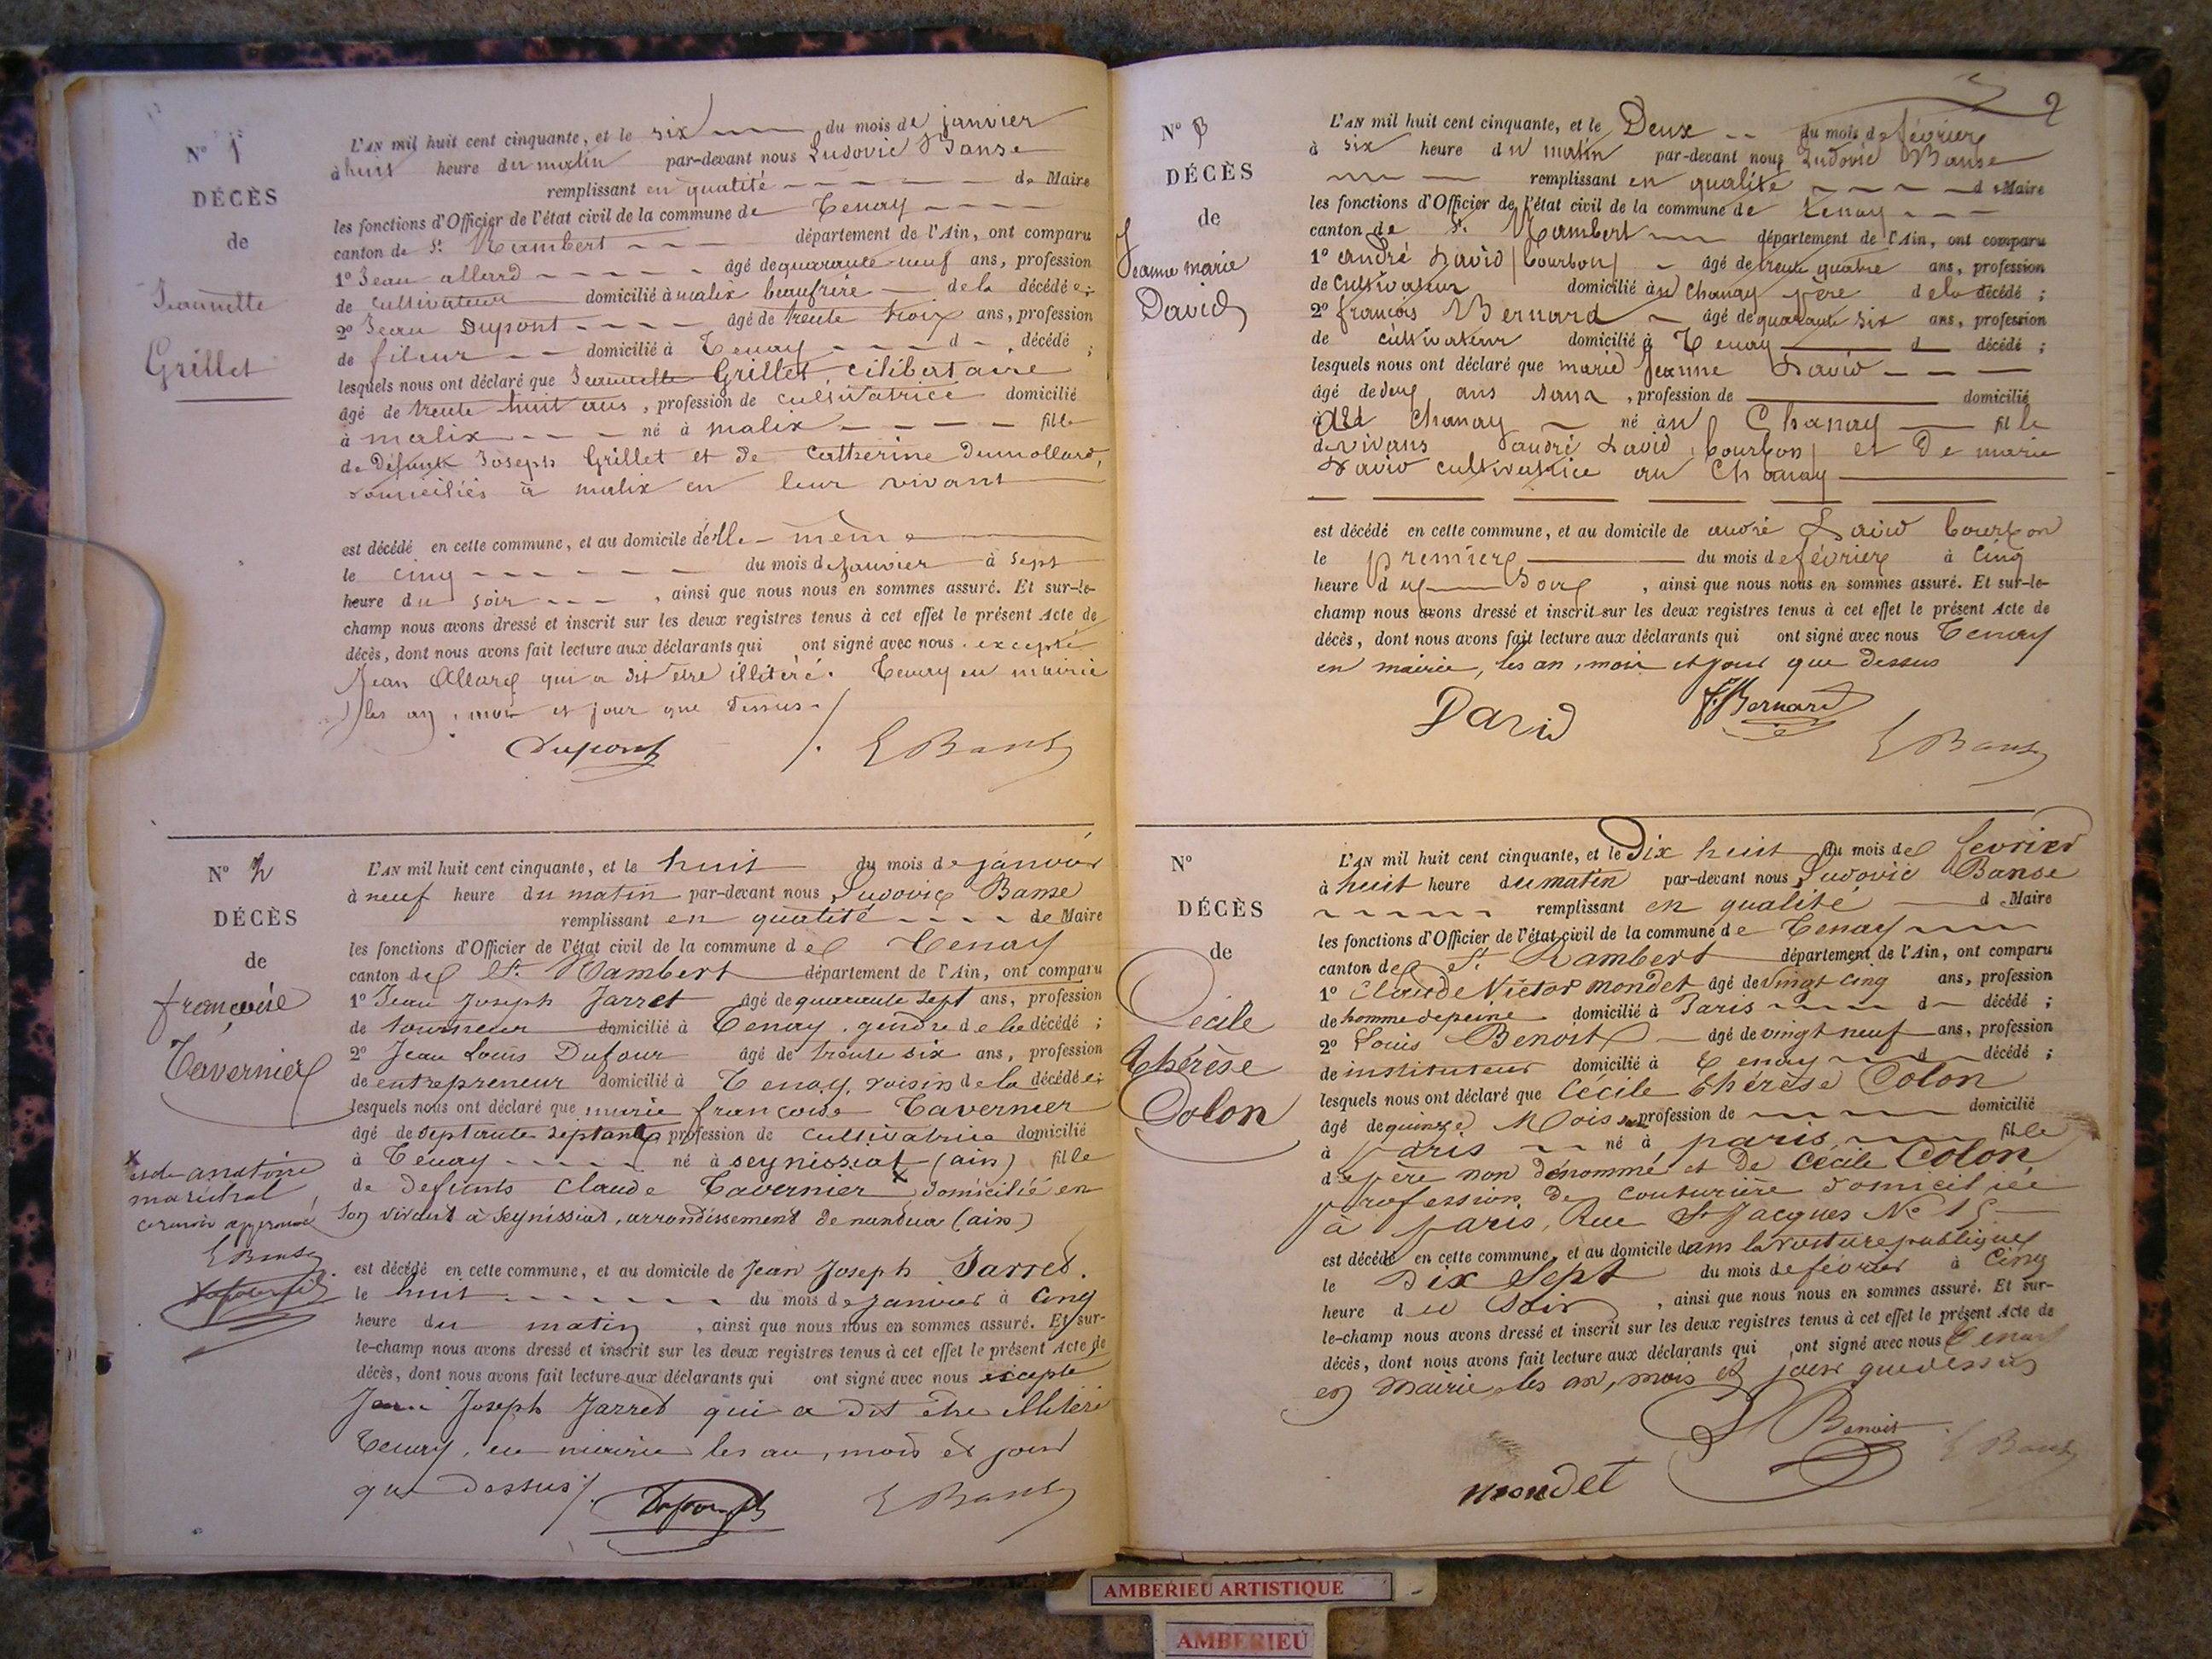 N° 1
DÉCÈS
de
Jeannette
Grillet
L'AN mil huit cent cinquante, et le six du mois de janvier
à huit heure du matin par-devant nous Ludovic Banse
remplissant en qualité de Maire
les fonctions d'Officier de l'état civil de la commune de Tenay
canton de St Rambert département de l'Ain, ont comparu
1° Jean allard âgé de quarante neuf ans, profession
de cultivateur domicilié à malix beaufrère de la décédée;
2° Jean Dupont âgé de trente trois ans, profession
de fileur domicilié à Tenay d décédé ;
lesquels nous ont déclaré que Jeannette Grillet, cilibataire
âgé de trente huit ans, profession de cultivatrice domicilié
à malix né à malix fille
de Défunt Joseph Grillet et de Catherine Dumollard,
domiciliés à malix en leur vivant
est décédé en cette commune, et au domicile d'elle-même
le cinq du mois de Janvier à sept
heure du soir , ainsi que nous nous en sommes assuré. Et sur-le-
champ nous avons dressé et inscrit sur les deux registres tenus à cet effet le présent Acte de
décès, dont nous avons fait lecture aux déclarants qui ont signé avec nous excepté
Jean Allard qui a dit etre illitéré. Tenay en mairie
les an, mois et jour que dessus./
Dupont L Banse
N° 2
DÉCÈS
de
françoise
Tavernier
L'AN mil huit cent cinquante, et le huit du mois de janvier
à neuf heure du matin par-devant nous Ludovic Banse
remplissant en qualité de Maire
les fonctions d'Officier de l'état civil de la commune de Tenay
canton de St Rambert département de l'Ain, ont comparu
1° Jean Joseph Jarret âgé de quarante sept ans, profession
de tourneur domicilié à Tenay, gendre de la décédé ;
2° Jean Louis Dufour âgé de trente six ans, profession
de entrepreneur domicilié à Tenay, voisin de la décédée;
lesquels nous ont déclaré que marie françoise Tavernier
âgé de septante sept ans profession de cultivatrice domicilié
à Tenay né à seynissiat (ain) fille
de defunts Claude Tavernier x domicilié en
son vivant à Seynissiat, arrondissement de nantua (ain)
x
et d anatoine
maréchal
ce renvoi approuvé
L Banse
est décédé en cette commune, et au domicile de Jean Joseph Jarret.
le huit du mois de janvier à cinq
heure du matin , ainsi que nous nous en sommes assuré. Et sur-
le-champ nous avons dressé et inscrit sur les deux registres tenus à cet effet le présent Acte de
décès, dont nous avons fait lecture aux déclarants qui ont signé avec nous excepte
Jean Joseph Jarret qui a dit être illitéré
Tenay, en mairie les an, mois et jour
que dessus/.
L Banse
2
N° 3
DÉCÈS
de
Jeanne marie
David
L'AN mil huit cent cinquante, et le Deux du mois de février
à six heure du matin par-devant nous Ludovic Banse
remplissant en qualité d Maire
les fonctions d'Officier de l'état civil de la commune de Tenay
canton de St Rambert département de l'Ain, ont comparu
1° andré David (bourbon) âgé de trente quatre ans, profession
de cultivateur domicilié au Chanay père de la décédé ;
2° françois Bernard âgé de quarante six ans, profession
de cultivateur domicilié à Tenay d décédé ;
lesquels nous ont déclaré que marie Jeanne David
âgé de deux ans sans , profession de domicilié
au Chanay né au Chanay fille
de vivans d'andré David (bourbon) et De marie
David cultivatrice au Chanay
est décédé en cette commune, et au domicile de andré David bourbon
le premier du mois de février à cinq
heure du soir , ainsi que nous nous en sommes assuré. Et sur-le-
champ nous avons dressé et inscrit sur les deux registres tenus à cet effet le présent Acte de
décès, dont nous avons fait lecture aux déclarants qui ont signé avec nous Tenay
en mairie, les an, mois et jour que dessus
David F. Bernard
L Banse
N°
DÉCÈS
de
Cécile
thérèse
Colon
L'AN mil huit cent cinquante, et le Dix huit du mois de fevrier
à huit heure du matin par-devant nous Ludovic Banse
remplissant en qualité d Maire
les fonctions d'Officier de l'état civil de la commune de Tenay
canton de St Rambert département de l'Ain, ont comparu
1° Claude Victor mondet âgé de vingt cinq ans, profession
de homme de peine domicilié à Paris d décédé ;
2° Louis Benoit âgé de vingt neuf ans, profession
de instituteur domicilié à Tenay d décédé ;
lesquels nous ont déclaré que Cécile thérèse Colon
âgé de quinze Mois profession de domicilié
à paris né à paris fille
de père non dénommé et de Cécile Colon
profession de couturière domiciliée
à paris, Rue St Jacques No 15
est décédé en cette commune, et au domicile dans la voiture publique
le Dix Sept du mois de fevrier à cinq
heure du soir , ainsi que nous nous en sommes assuré. Et sur-
le-champ nous avons dressé et inscrit sur les deux registres tenus à cet effet le présent Acte de
décès, dont nous avons fait lecture aux déclarants qui ont signé avec nous Tenay
en mairie les an, mois et jour que dessus
Benoit L Banse
mondet
AMBERIEU ARTISTIQUE
AMBERIEU